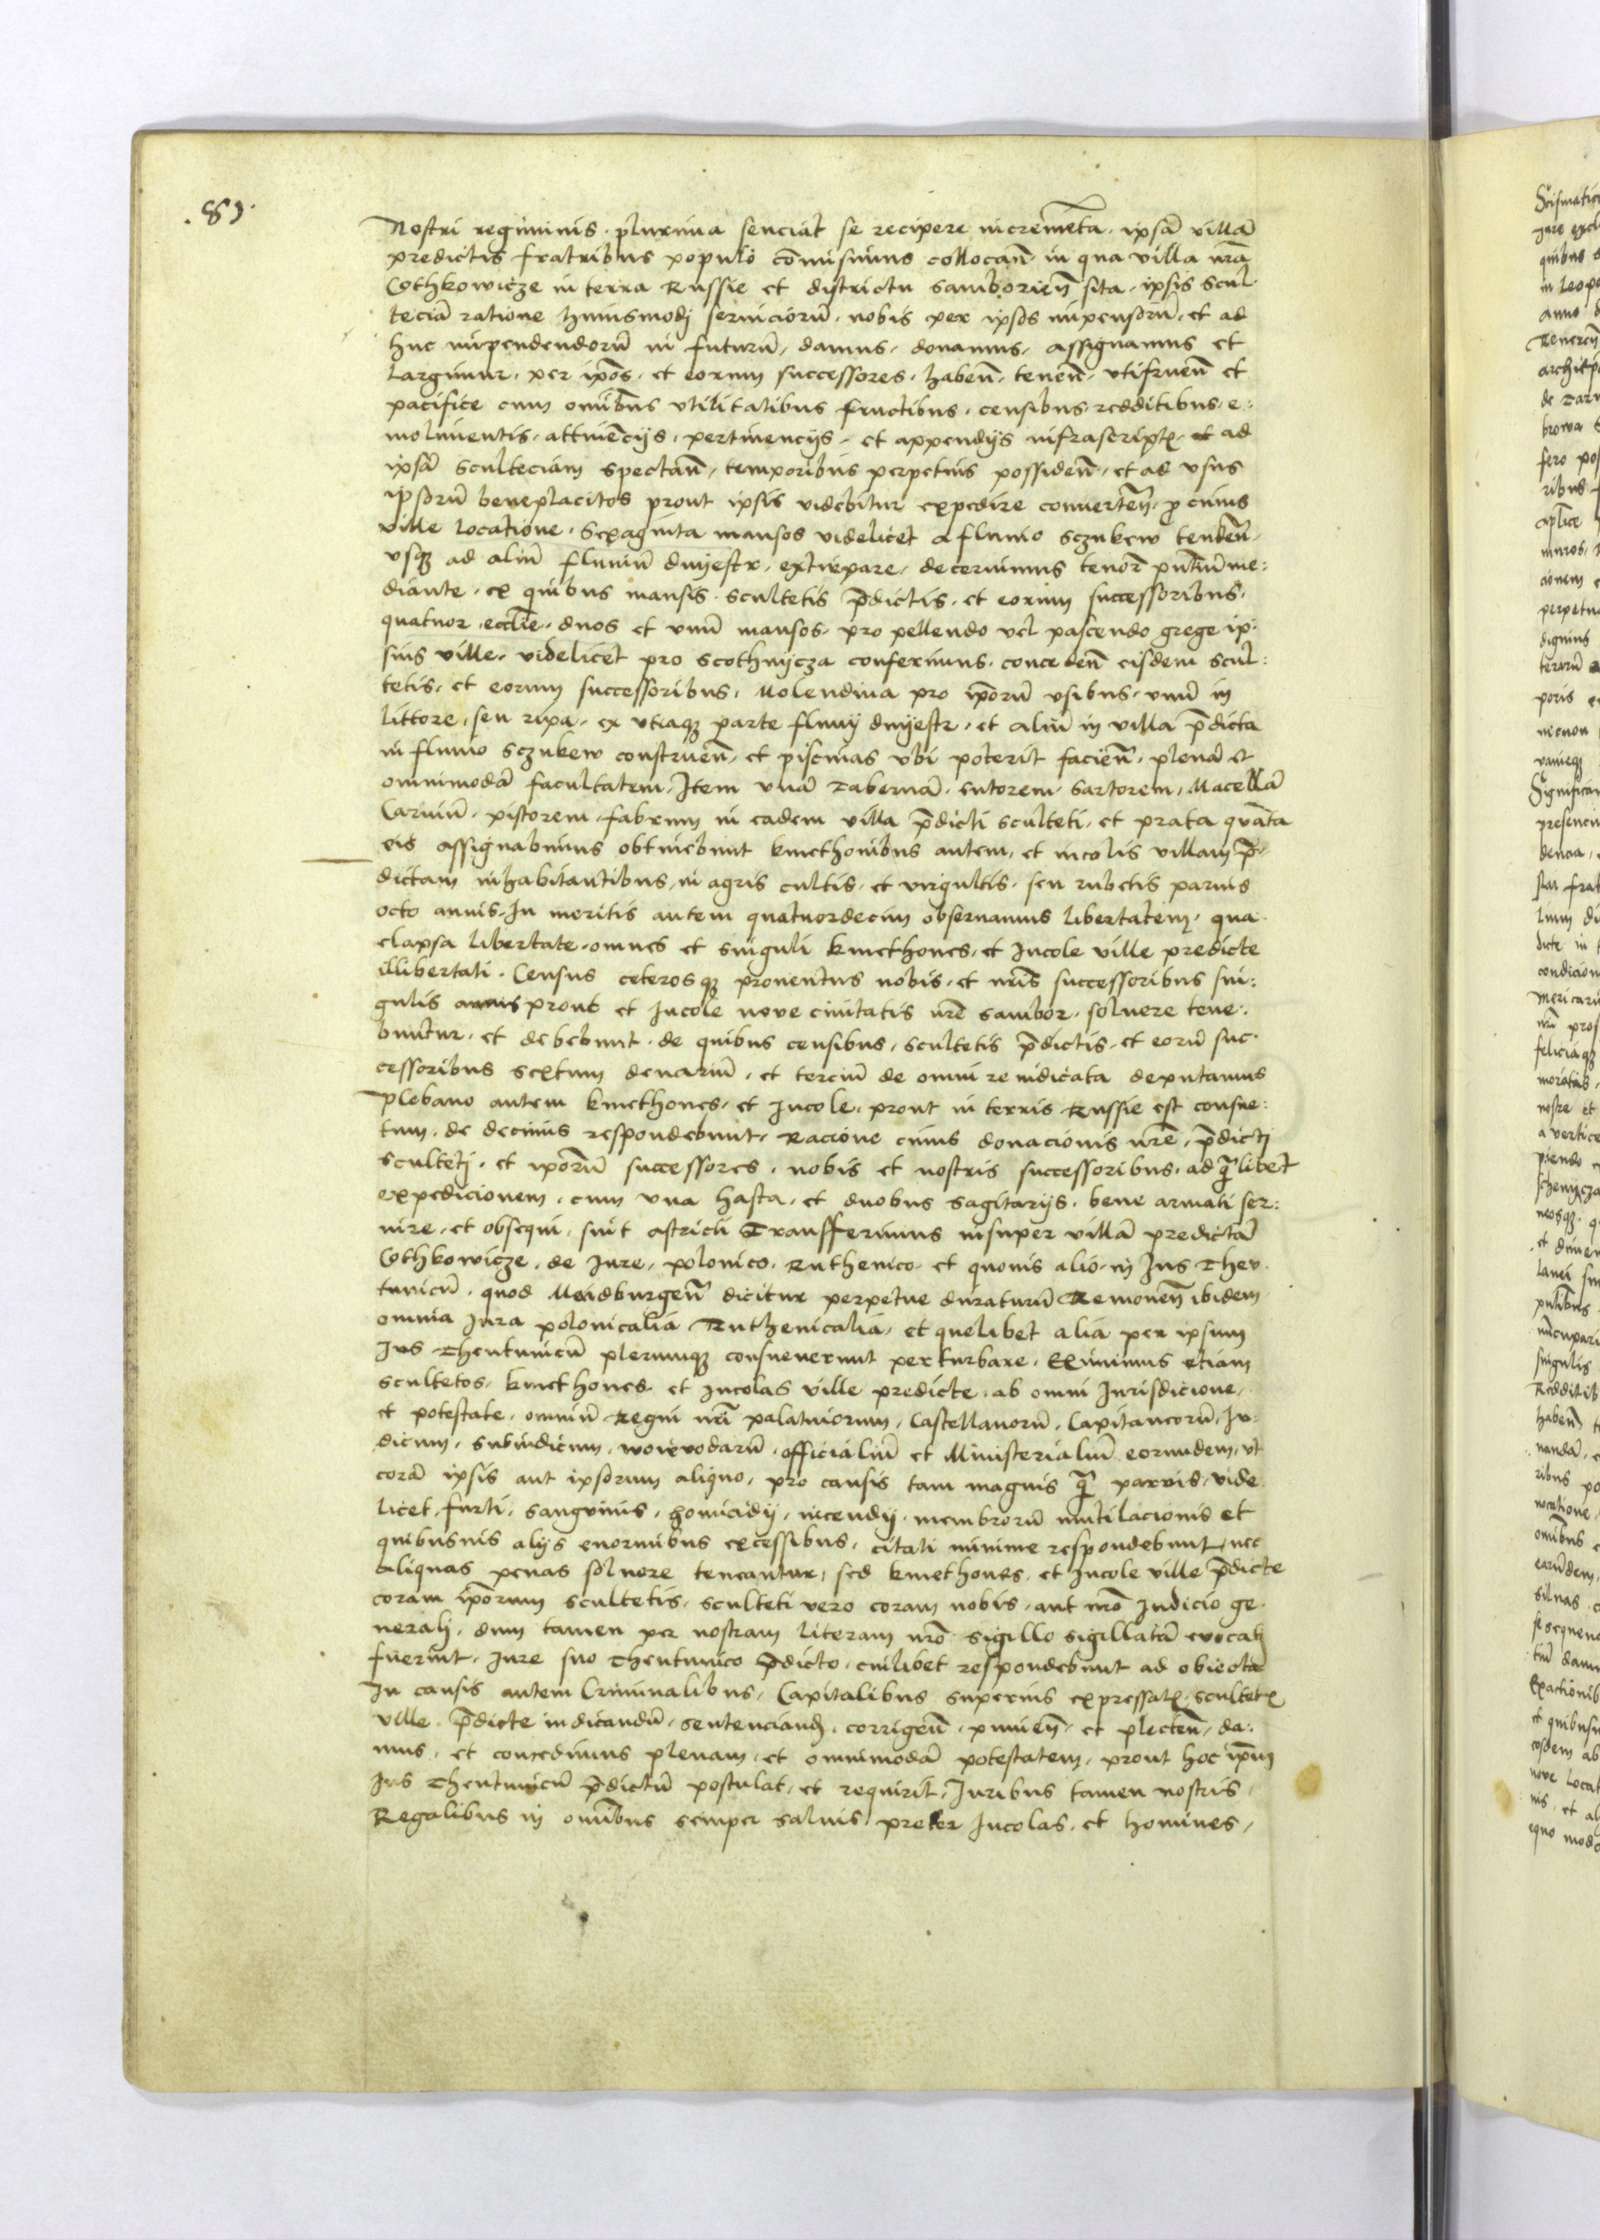 .89.
Nostri regiminis plurima senciat se recipere incremẽta. ipsã villã
predictis fratribus populo cõmisimus collocañ in qua villa nrã
Cothkowicze in terra Russie et districtu Samborieñ sita. ipsis scul-
teciã ratione huiusmodj seruiciorũ. nobis per ipsos impensorũ. et ad
huc impendendorũ in futurũ, damus, donamus, assignamus et
largimur. per ip̃os. et eorum successores. habeñ. teneñ. vtifrueñ et
pacifice cum om̃ibus vtilitatibus fructibus. censibus redditibus. e:
molimentis. attinẽcijs. pertinencijs. et appendijs infrascript̃. ad
ipsã sculteciam spectañ, temporibus perpetuis possideñ, et ad vsus
ipsorũ beneplacitos prout ipsis videbitur expedire conuerteñ. p̱ cuius
ville locatione. Sexaginta mansos videlicet a fluuio Sczukew tendeñ.
vsqꝫ ad aliũ fluuiũ dnyestr, extirpare, decernimus tenor̃ pñtiũ me:
diante. ex quibus mansis. scultetis p̃dictis. et eorum successoribus.
quatuor. ecclie. duos et vnũ mansos. pro pellendo vel pascendo grege ip:
sius ville. videlicet pro scothnycza conferimus. concedeñ eisdem scul:
tetis. et eorum successoribus. Molendina pro ip̃orũ vsibus. vnũ in
littore, seu ripa. ex vtraqꝫ parte fluuij dnyestr. et aliũ in villa p̃dicta
in fluuio Sczukew construeñ. et piscinas vbi poterit facieñ. plenã et
omnimodã facultatem. Item vnã Tabernã. Sutorem. Sartorem, Macellã
Carniũ. pistorem. fabrum in eadem villa p̃dicti sculteti. et prata quãta
eis assignabimus obtinebunt kmethonibus autem. et incolis villam p̃-
dictam inhabitantibus, in agris cultis. et virgultis. seu rubetis paruis
octo annis. In meritis autem quatuordecim obseruamus libertatem. qua
elapsa libertate. omnes et singuli kmethones. et Incole ville predicte
illibertati. Census ceterosqꝫ prouentus nobis. et nris successoribus sin:
gulis annis prout et Incole noue ciuitatis nrẽ Sambor. soluere tene:
buntur. et debebunt. de quibus censibus. scultetis p̃dictis. et eorũ suc-
cessoribus sextum denariũ. et terciũ de omni re iudicata deputamus
Plebano autem kmethones. et Incole. prout in terris Russie est consue:
tum. de decimis respondebunt. Racione cuius donacionis nrẽ. p̃dictj
scultetj. et ip̃orũ successores. nobis et nostris successoribus. ad q̃libet
expedicionem. cum vna hasta. et duobus sagitarijs. bene armati ser:
uire. et obsequi. sint astricti Transfferimus insuper villã predictã
Cothkowicze. de Jure. polonico. Ruthenico. et quouis alio. in Jus Theu
tunicũ. quod Meidburgeñ dicitur perpetue duraturũ Remoueñ ibidem
omnia Jura polonicalia Ruthenicalia. et quelibet alia per ipsum
Jus Theutunicũ plerumqꝫ consueuerunt perturbare. Eximimus etiam
scultetos. kmethones. et Incolas ville predicte. ab omni Jurisdicione.
et potestate. omniũ Regni nrĩ palatinorum. Castellanorũ. Capitaneorũ. Ju:
dicum. Subiudicum. woiewodarũ. officialiũ et Ministerialiũ eorundem. vt
corã ipsis aut ipsorum aliquo. pro causis tam magnis q̃ paruis. vide
licet. furti. sangwinis. homicidij. incendij. membrorũ mutilacionis et
quibusuis alijs enormibus excessibus. citati minime respondebunt. nec
aliquas penas soluere teneantur, sed kmethones. et Incole ville p̃dicte
coram ip̃orum scultetis. sculteti vero coram nobis. aut nrõ Judicio ge.
neralj. dum tamen per nostram literam nrõ sigillo sigillatã euocati
fuerint. Jure suo Theutunico p̃dicto. cuilibet respondebunt ad obiecta
In causis autem Criminalibus. Capitalibus superius expressat̃. scultet̃
ville. p̃dicte iudicandũ. sentenciandj. corrigeñ. punieñ. et plecteñ. da:
mus. et concedimus plenam. et omnimodã potestatem. prout hoc ip̃um
Jus Theutunicũ p̃dictũ postulat. et requirit. Juribus tamen nostris.
Regalibus in om̃ibus semper saluis. preter Incolas. et homines.